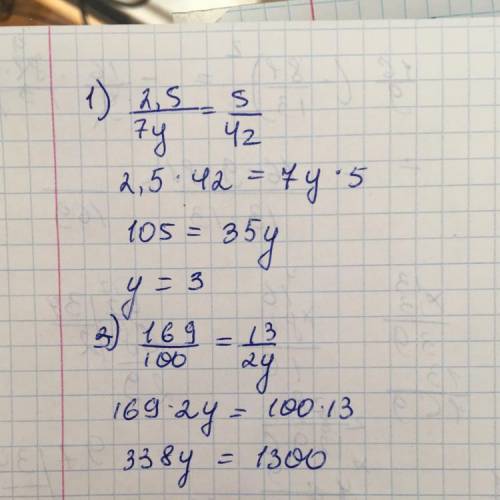 1) 2,5/7y = 5/42
2,5 · 42 = 7y · 5
105 = 35y
y = 3
2) 169/100 = 13/2y
169 · 2y = 100 · 13
338y = 1300